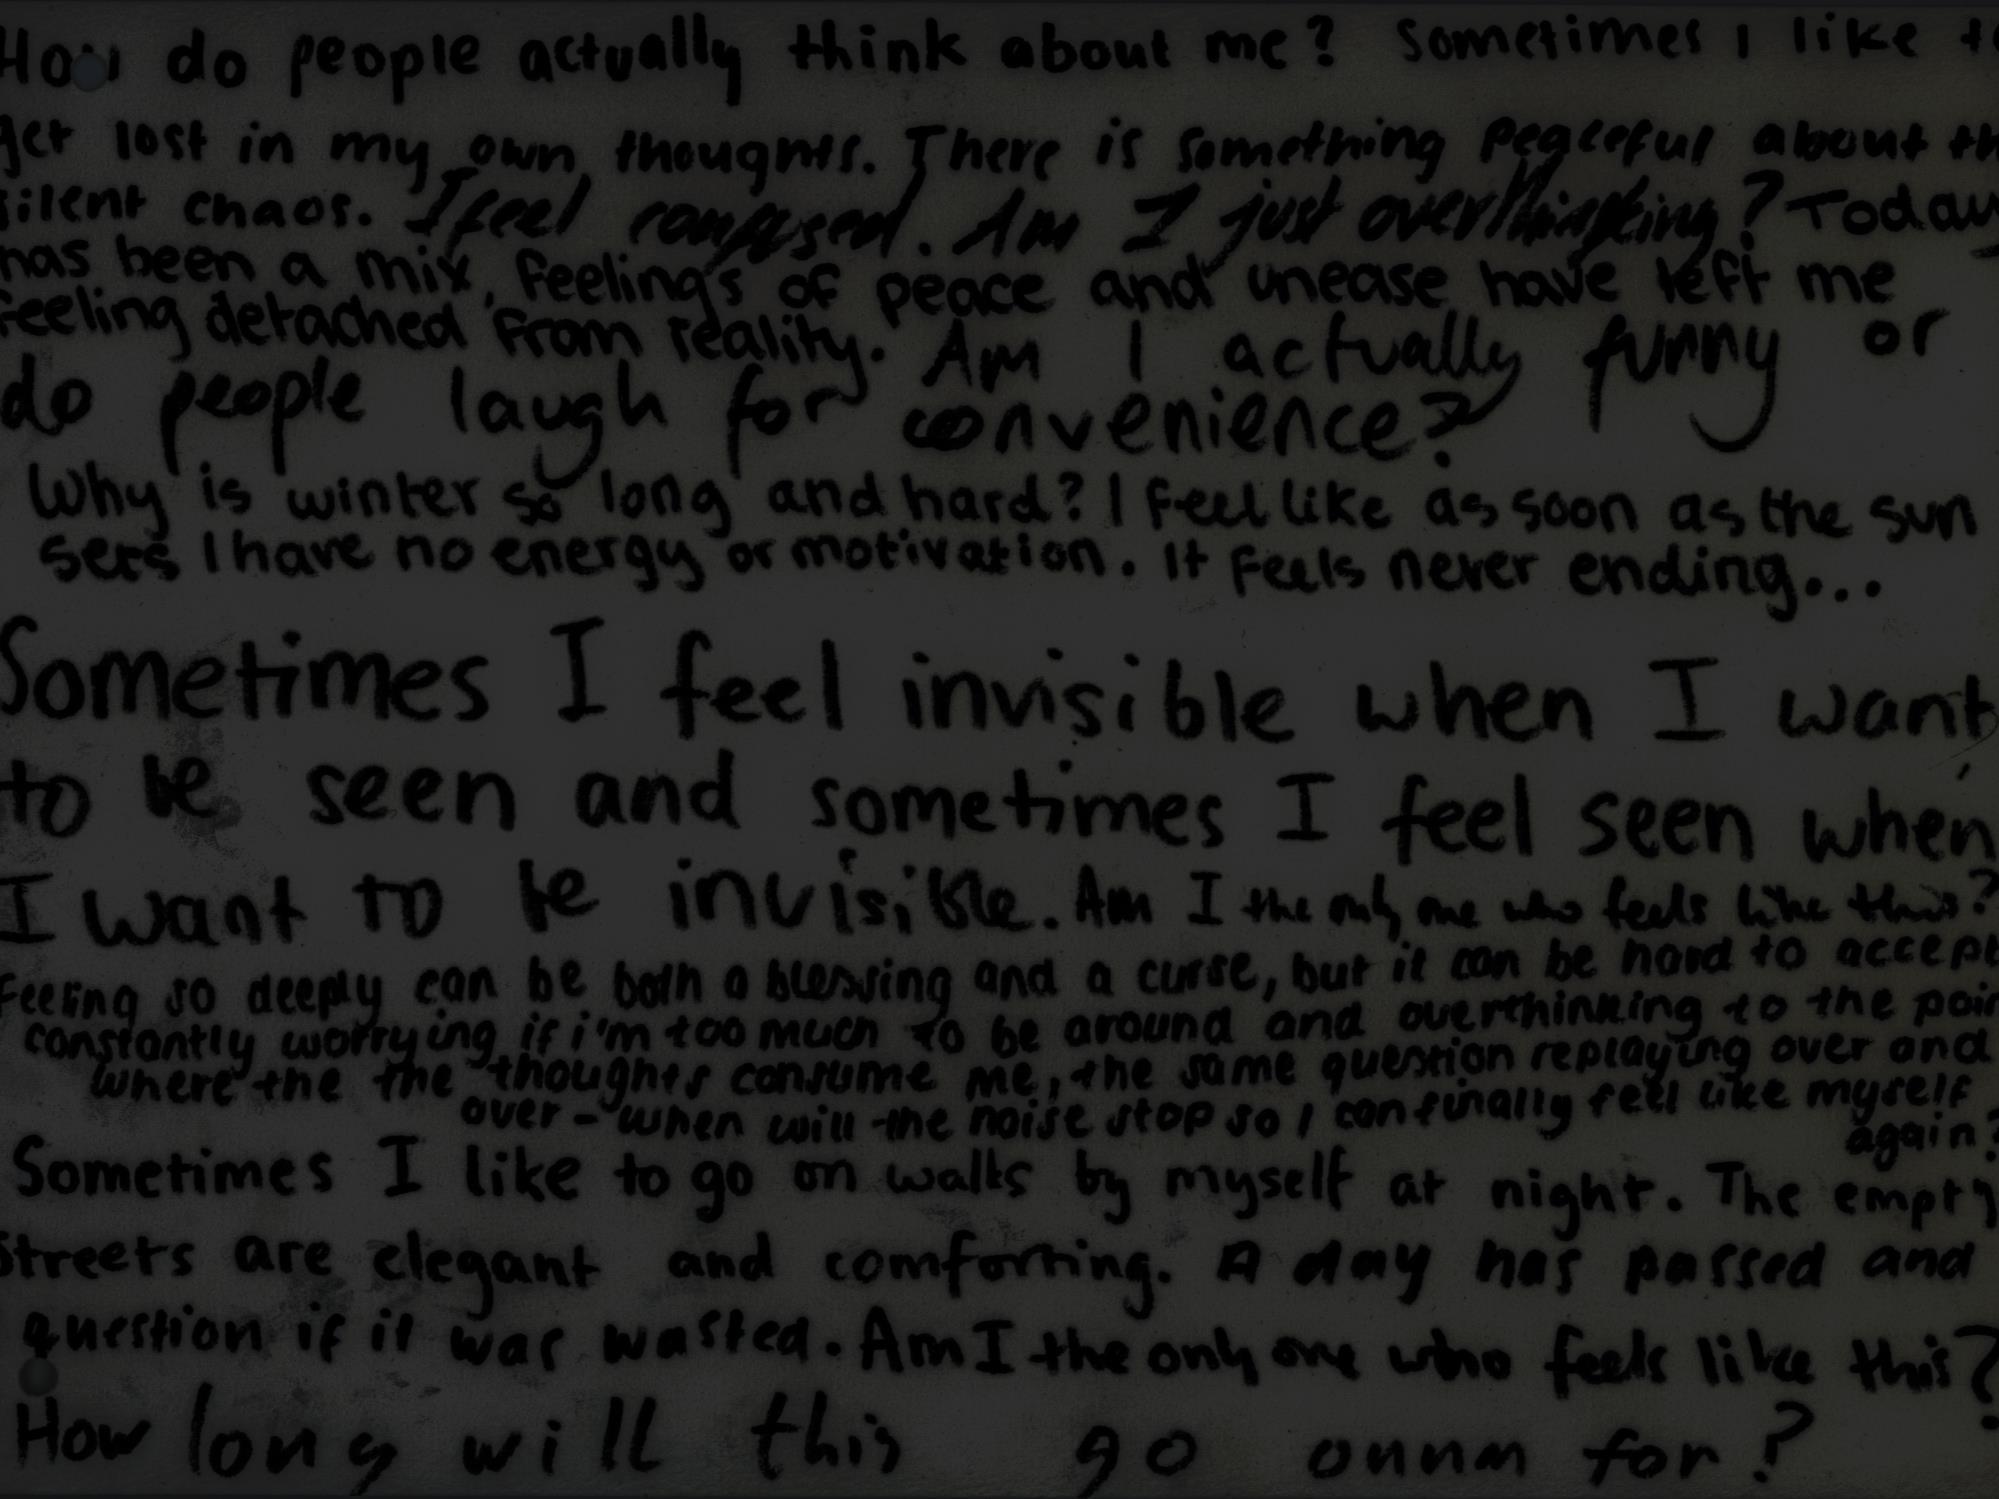 How do people actually think about me? Sometimes I like to
get lost in my own thoughts. There is something peaceful about th
silent chaos. I feel confused. Am I just overthinking? Today
has been a mix, feelings of peace and unease have left me
feeling detached from reality. Am I actually funny or
do people laugh for convenience?
Why is winter so long and hard? I feel like as soon as the sun
sets I have no energy or motivation. It feels never ending...
Sometimes I feel invisible when I want
to be seen and sometimes I feel seen when
I want to be invisible. Am I the only one who feels like this?
Feeling so deeply can be both a blessing and a curse, but it can be hard to accept
constantly worrying if i'm too much to be around and overthinking to the poin
where the the thoughts consume me, the same question replaying over and
over - when will the noise stop so I can finally feel like myself
again?
Sometimes I like to go on walks by myself at night. The empty
streets are elegant and comforting. A day has passed and
question if it was wasted. Am I the only one who feels like this?
How long will this go onnn for?